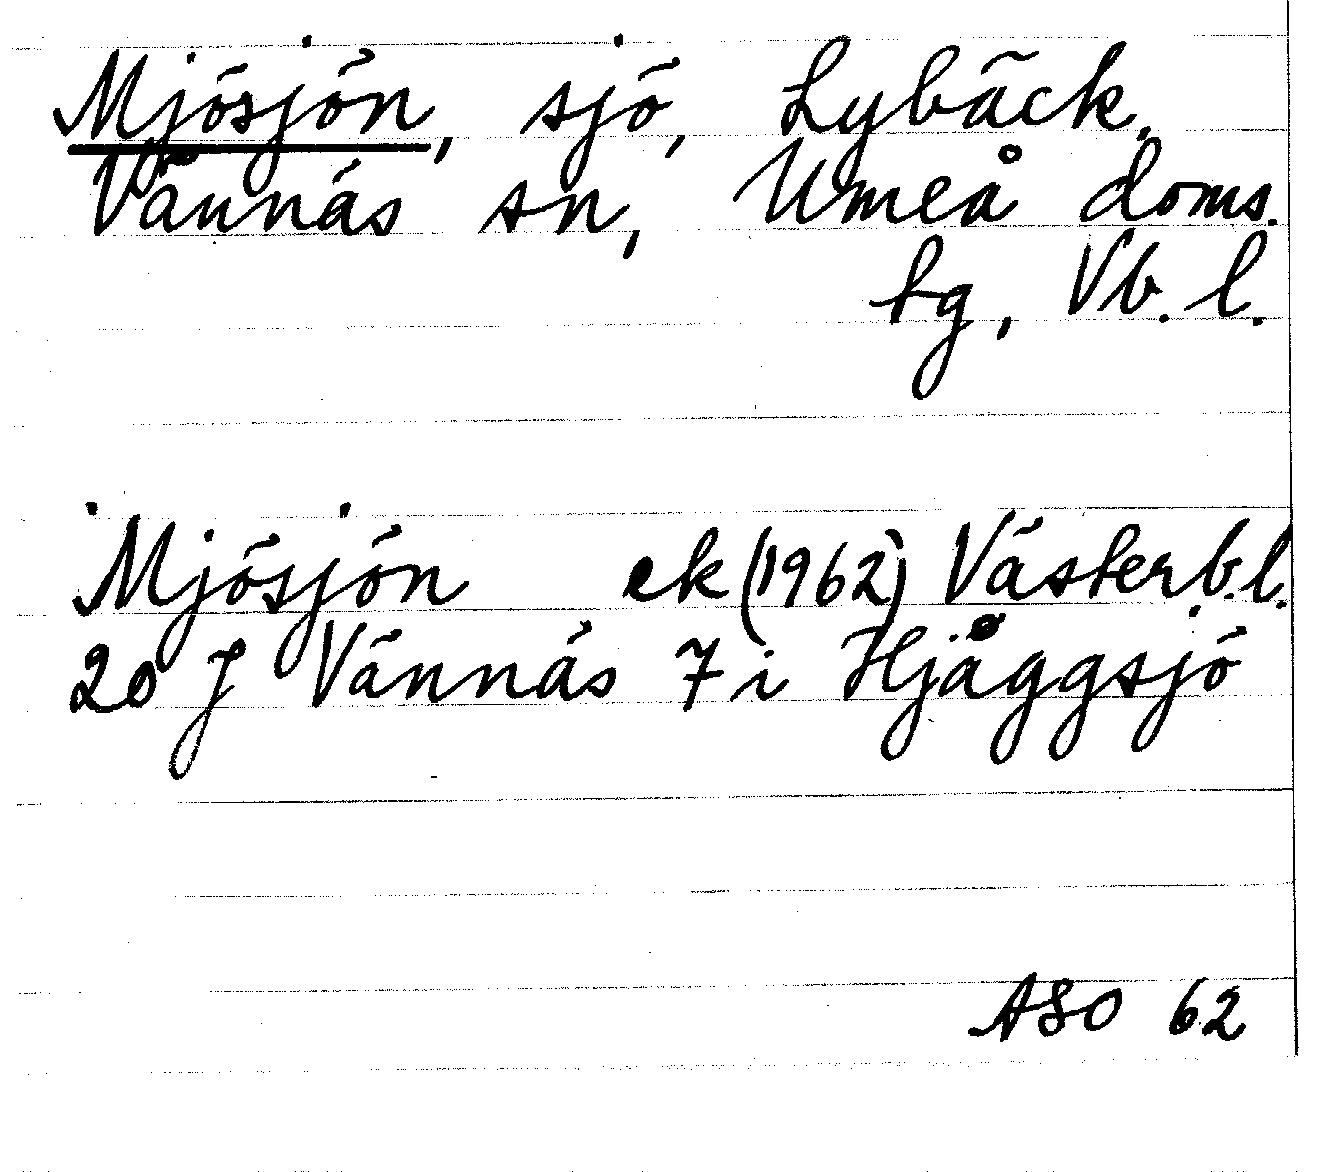 Mjösjön, sjö, Lybäck,
Vännäs sn, Umeå doms.
hg, Vb. l.
Mjösjön ek (1962) Västerb.l.
20 J Vännäs 7 i Hjåggsjö
ASO 62